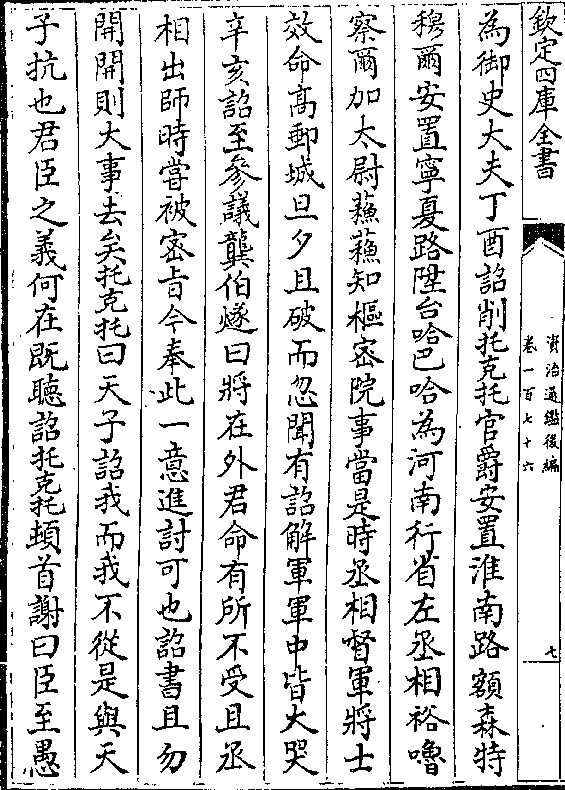 欽定四庫全書
資治通鑑後編
卷一百七十六
七
為御史大夫丁酉詔削托克托官爵安置淮南路額森特
穆爾安置寧夏路陞台哈巴哈為河南行省左丞相裕嚕
察爾加太尉蘓蘓知樞密院事當是時丞相督軍將士
效命高郵城旦夕且破而忽聞有詔解軍軍中皆大哭
辛亥詔至參議龔伯燧曰將在外君命有所不受且丞
相出師時嘗被密旨今奉此一意進討可也詔書且勿
開開則大事去矣托克托曰天子詔我而我不從是與天
子抗也君臣之義何在既聽詔托克托頓首謝曰臣至愚